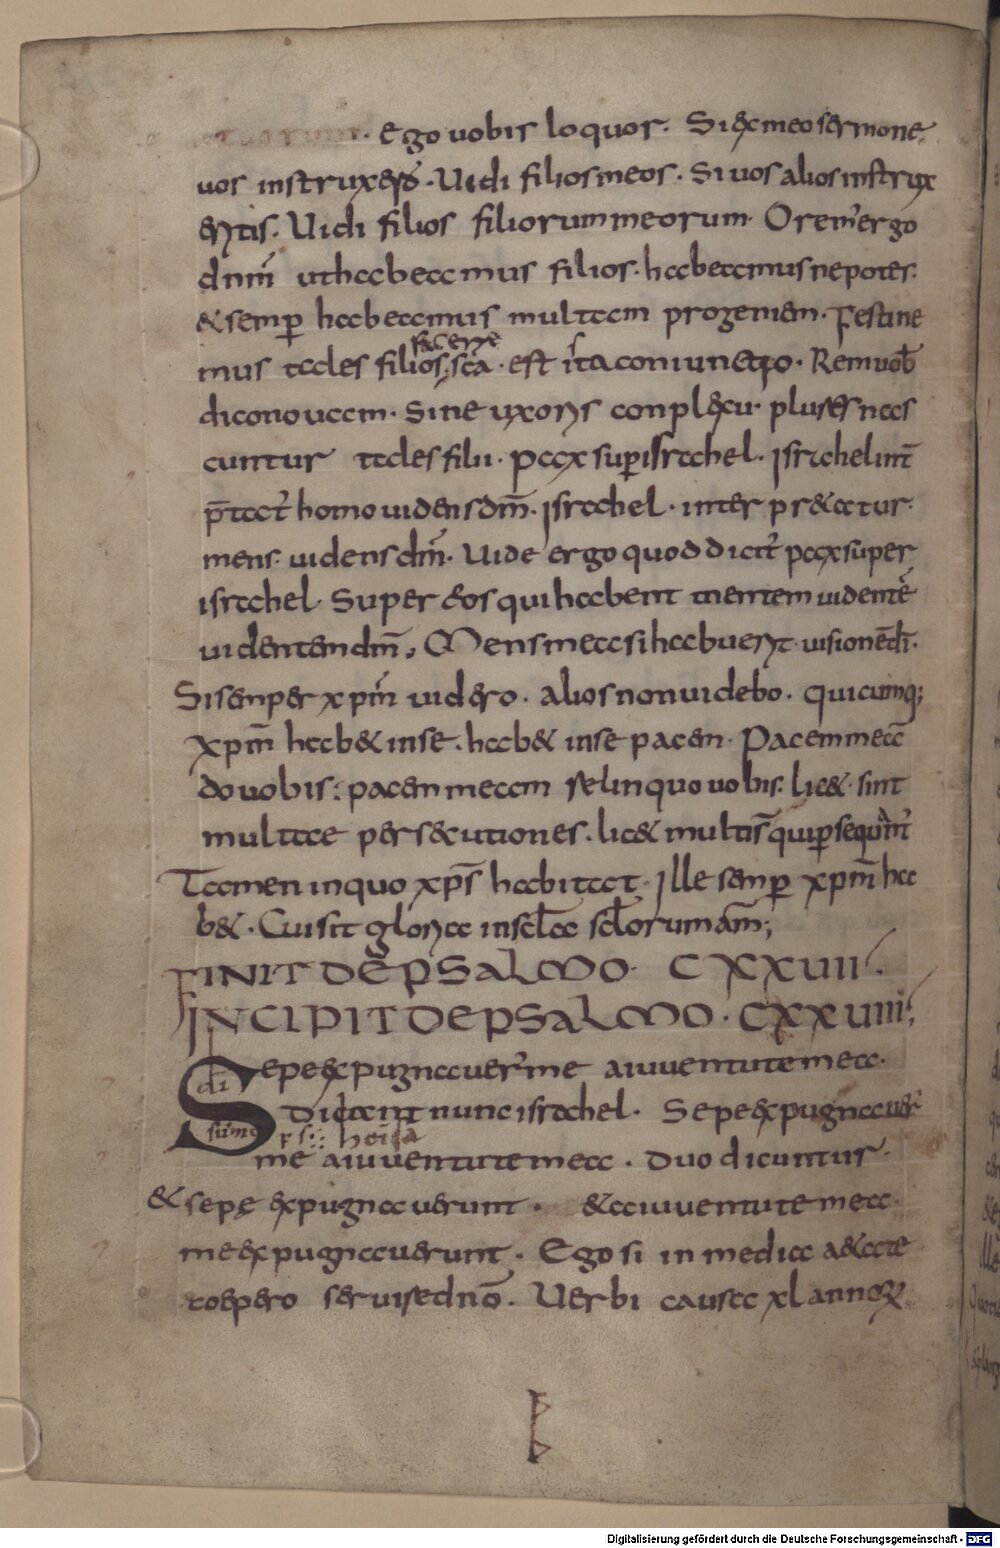 . ego uobis loquor. Si ex meo sermone
uos instruxero. Uidi filios meos. Si uos alios instrux
eritis. Uidi filios filiorum meorum. Orem' ergo
dnm ut habeamus filios. habeamus nepotes.
& semp habeamus multam progeniem. Festine
facere
mus tales filios. sca. est ista coniunctio. Rem uob
dico nouam. Sine uxoris conplexu. plures nas
cuntur tales filii. Pax sup israhel. israhel int
ptat' homo uidens dm. israhel. interpr&atur.
mens. uidens dm. Uide ergo quod dicit pax super
israhel. Super eos qui habent mentem uidentē
uidentem dm. Mens mea si habuerit uisionē di.
Si semper xpm uidero. alios non uidebo. quicumq;
xpm hab& in se. hab& in se pacem. Pacem meā
do uobis: pacem meam relinquo uobis. lic& sint
multae persecutiones. lic& multi s qui psequant'
Tamen in quo xps habitat. ille semp xpm ha
b&. Cui sit gloria in scla sclorum am;
FINIT DE PSALMO. CXXVIII.
INCIPIT DE PSALMO. CXXVIIII;
Sepe expugnauer' me a iuuentute mea.
di
Dicant nunc israhel. Sepe expugnauer'
sūme
me a iuuentute mea. Duo dicuntur.
& sepe expugnauerunt. & a iuuentute mea.
me expugnauerunt. Ego si in media aetate
coepero seruire dnō. Uerbi causa xl annorum